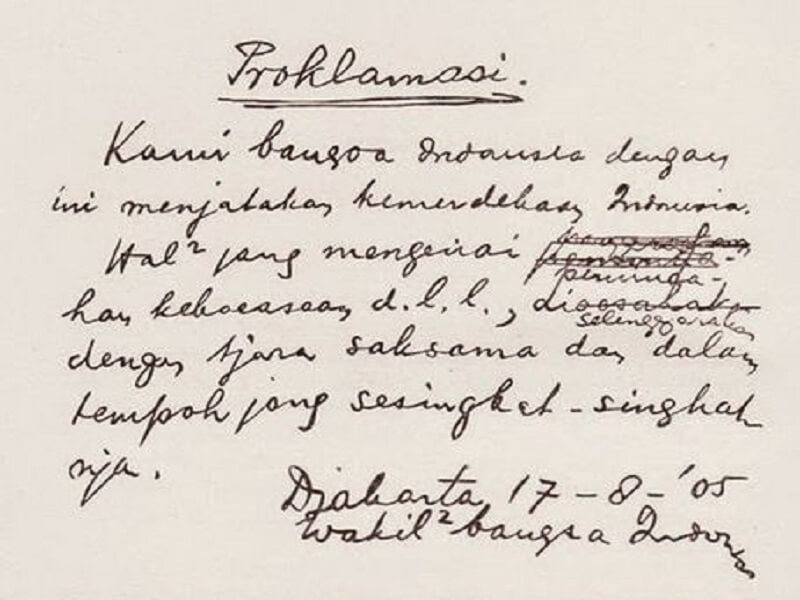 Proklamasi.
Kami bangsa Indonesia dengan
ini menjatakan kemerdekaan Indonesia.
Hal² jang mengenai
peminda-
han keboeasaan d.l.l., dioesahakan
selenggarakan
dengan tjara saksama dan dalam
tempoh jang sesingkat-singkat
nja.
Djakarta 17 - 8 - '05
Wakil² bangsa Indonesia